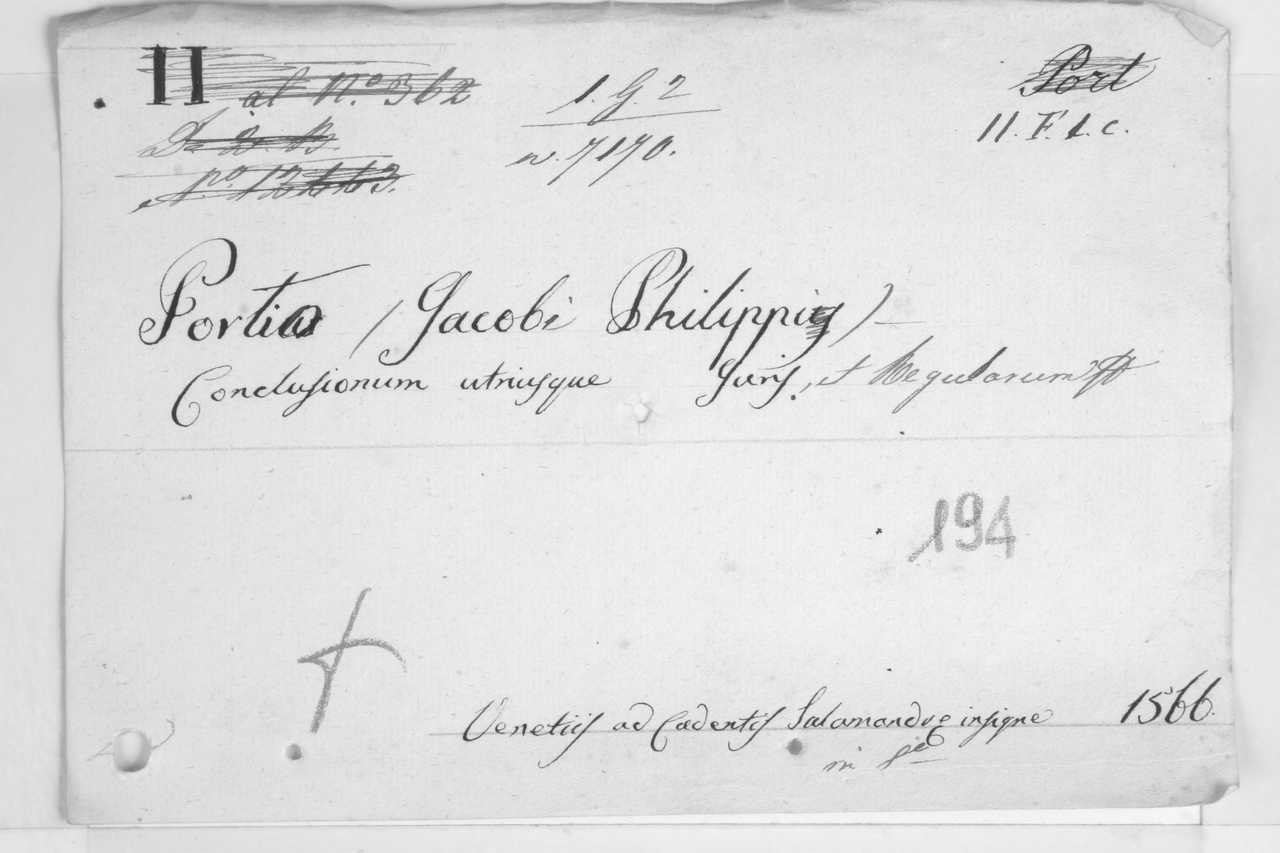 II al N.º 362 1. G. 2 Port
n. 7170. 11. F. 1. c.
Portia (Jacobi Philippi)
Conclusionum utriusque Juris, et Regularum
194
Venetiis ad Cadentis Salamandre insigne 1566.
in